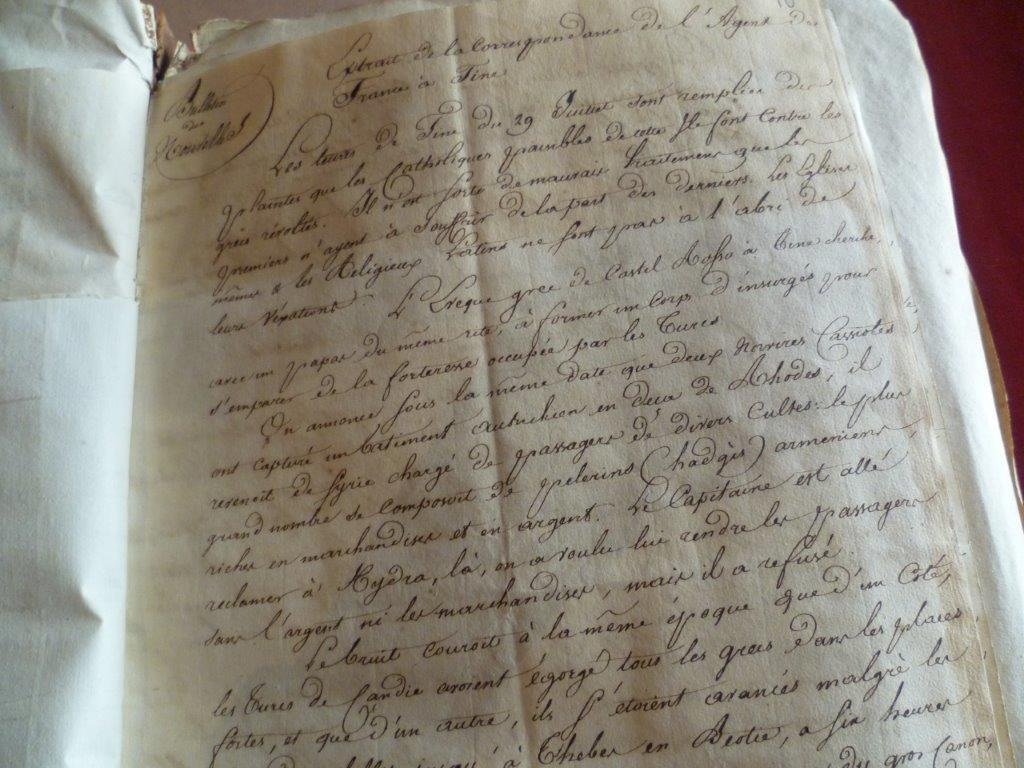 Extrait de la Correspondance de l'Agent de
France à Tine
Bulletin
de
Nouvelles
Les lettres de Tine du 29 Juillet sont remplies de
plaintes que les Catholiques paisibles de cette Ile font contre les
grecs révoltés. Il n'est sorte de mauvais traitement que les
premiers n'ayent à souffrir de la part des derniers. Les Eglises
mêmes & les Religieux Latins ne sont pas à l'abri de
leurs vexations. L'Evêque grec de Castel Rosso à Tine cherche,
avec un papas du même rite, à former un Corps d'insurgés pour
s'emparer de la forteresse occupée par les Turcs
On annonce sous la même date que deux Navires Cassiotes
ont capturé un batiment autrichien en deca de Rhodes, il
revenoit de Syrie chargé de passagers de divers Cultes: le plus
grand nombre se composoit de pelerins (hadgis) armeniens,
riches en marchandises et en argent. Le Capitaine est allé
reclamer à Hydra, là, on a voulu lui rendre les passagers
sans l'argent ni les marchandises, mais il a refusé.
Le bruit couroit à la même époque que d'un Coté,
les Turcs de Candie avoient égorgé tous les grecs dans les places
fortes, et que d'un autre, ils s'étoient avancés malgré les
à Thebes en Beotie, a six heures
du gros Canon,